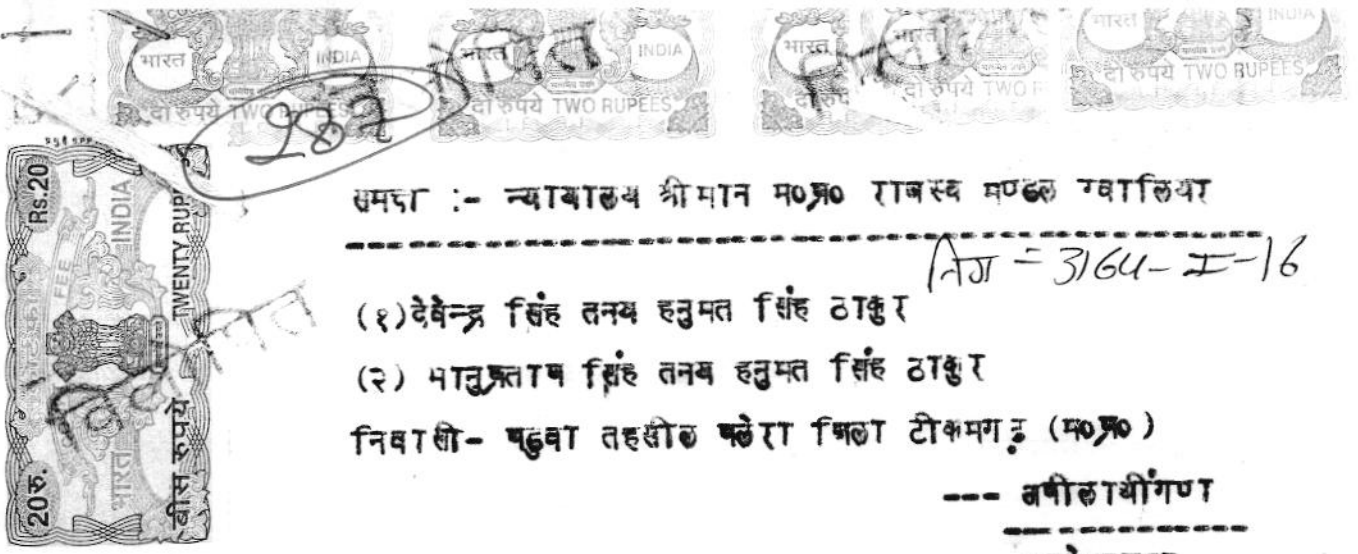 भारत INDIA भारत INDIA भारत भारत भारत INDIA
दो रुपये TWO RUPEES दो रुपये TWO RUPEES दो रुपये दो रुपये TWO दो रुपये TWO RUPEES
287
Rs.20 INDIA TWENTY RUP
FEE
20रु. भारत बीस रुपये
समक्ष :- न्यायालय श्रीमान म०प्र० राजस्व मण्डल ग्वालियर
निग = 3164-I-16
(१)देवेन्द्र सिंह तनय हनुमत सिंह ठाकुर
(२) भानुप्रताप सिंह तनय हनुमत सिंह ठाकुर
निवासी- पडुवा तहसील पलेरा जिला टीकमगढ़ (म०प्र०)
--- अपीलार्थीगण